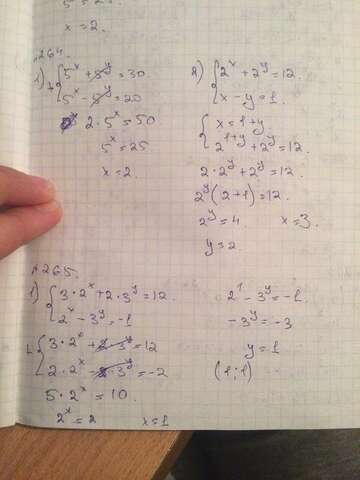 x = 2.
№264.
1) { 5^x + 5^y = 30
5^x - 5^y = 20
2 · 5^x = 50
5^x = 25
x = 2.
2) { 2^x + 2^y = 12.
x - y = 1.
{ x = 1 + y
2^{1+y} + 2^y = 12.
2 · 2^y + 2^y = 12.
2^y (2+1) = 12.
2^y = 4. x = 3.
y = 2.
№265.
1) { 3 · 2^x + 2 · 3^y = 12.
2^x - 3^y = -1
{ 3 · 2^x + 2 · 3^y = 12
2 · 2^x - 2 · 3^y = -2
5 · 2^x = 10.
2^x = 2 x = 1
2^1 - 3^y = -1.
-3^y = -3
y = 1
(1; 1)